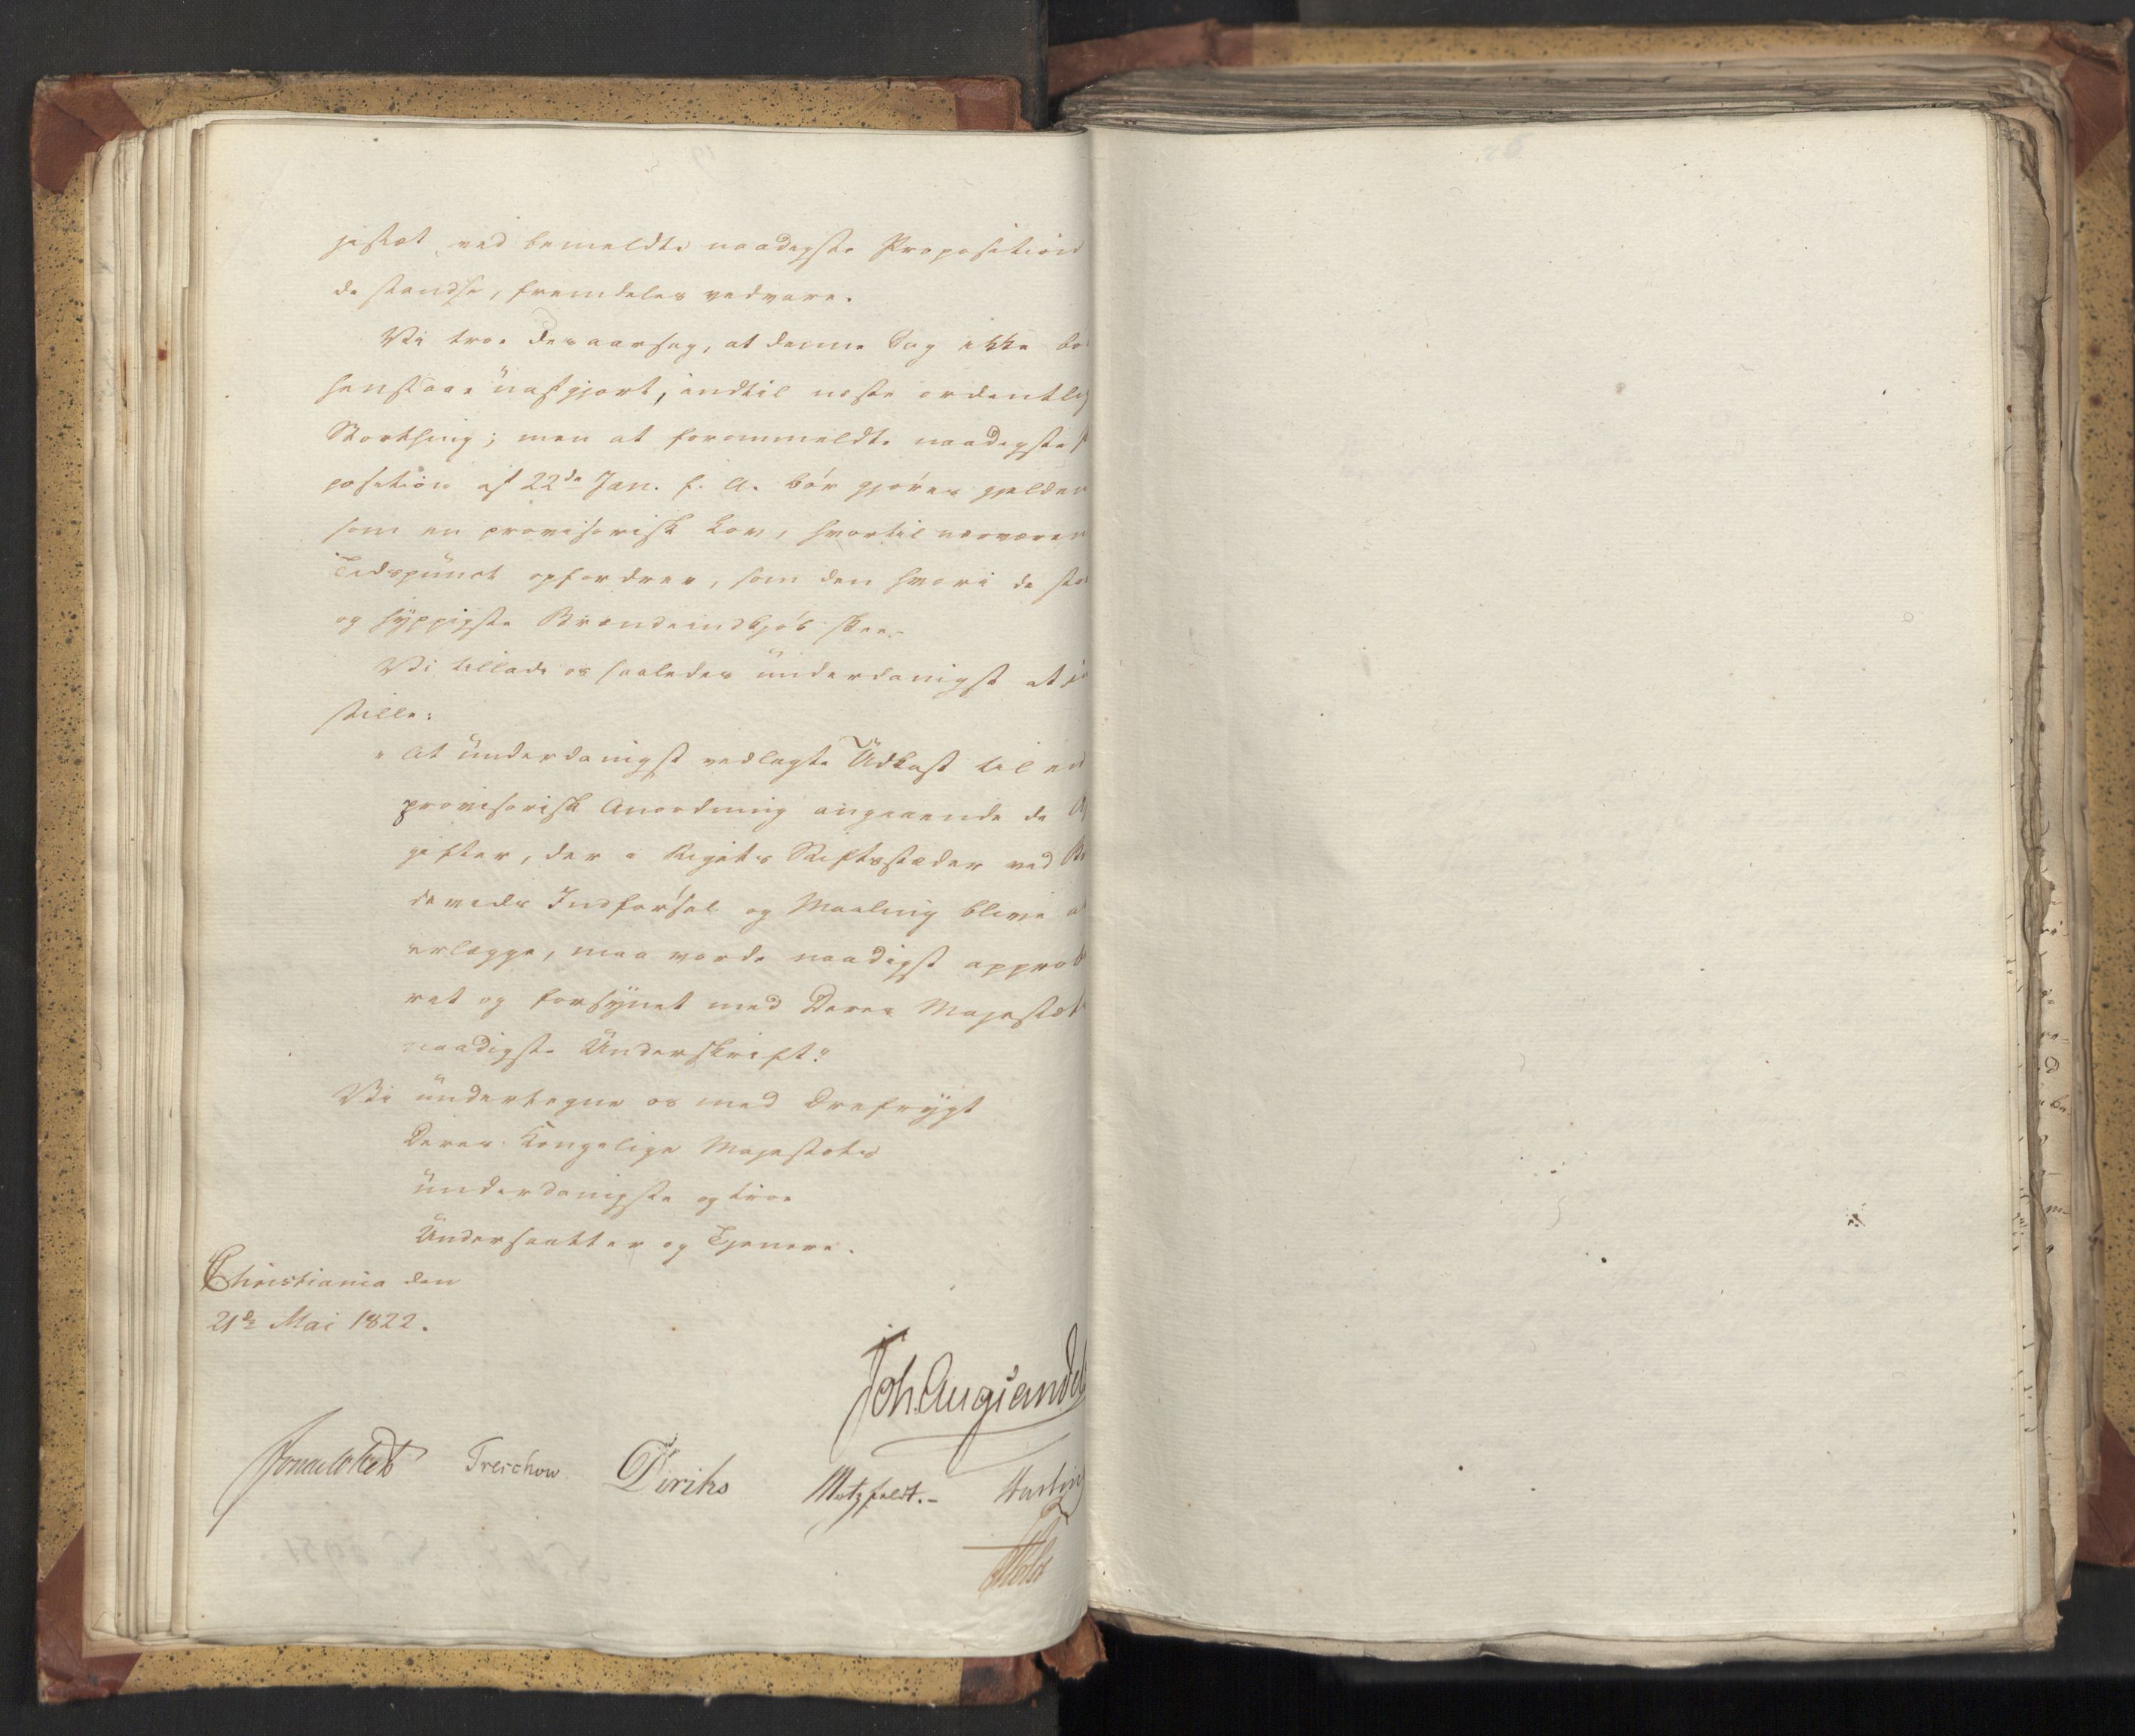 jestæt ved bemeldte naadigste Proposition
de standse, fremdeles vedvare.
Vi troe desaarsag, at denne Sag ikke bø
henstaae uafgjort, indtil neste ordentlig
Storthing; men at forommeldte naadigste P
position af 22de Jan. f. A. bør gjøres gjelden
som en provisorisk Lov, hvortil nærværen
Tidspunct opfordrer, som den hvori de stø
og hyppigste Brændeindkjøb skee.
Vi tillade os saaledes underdanigst at in
stille:
"At underdanigst vedlagte Udkast til en
provisorisk Anordning angaaende de A
gifter, der i Rigets Stiftsstæder ved Br
deveds Indførsel og Maaling blive at
erlægge, maa vorde naadigst approbe
ret og forsynet med Deres Majestæts
naadigste Underskrift."
Vi undertegne os med Ærefrygt
Deres Kongelige Majestæts
underdanigste og troe
Undersaatter og Tjenere.
Christiania den
21de Mai 1822.
Joh. Aug Sandel
Sommerhielm Treschow Diriks Motzfeldt.- Hasting
Holst